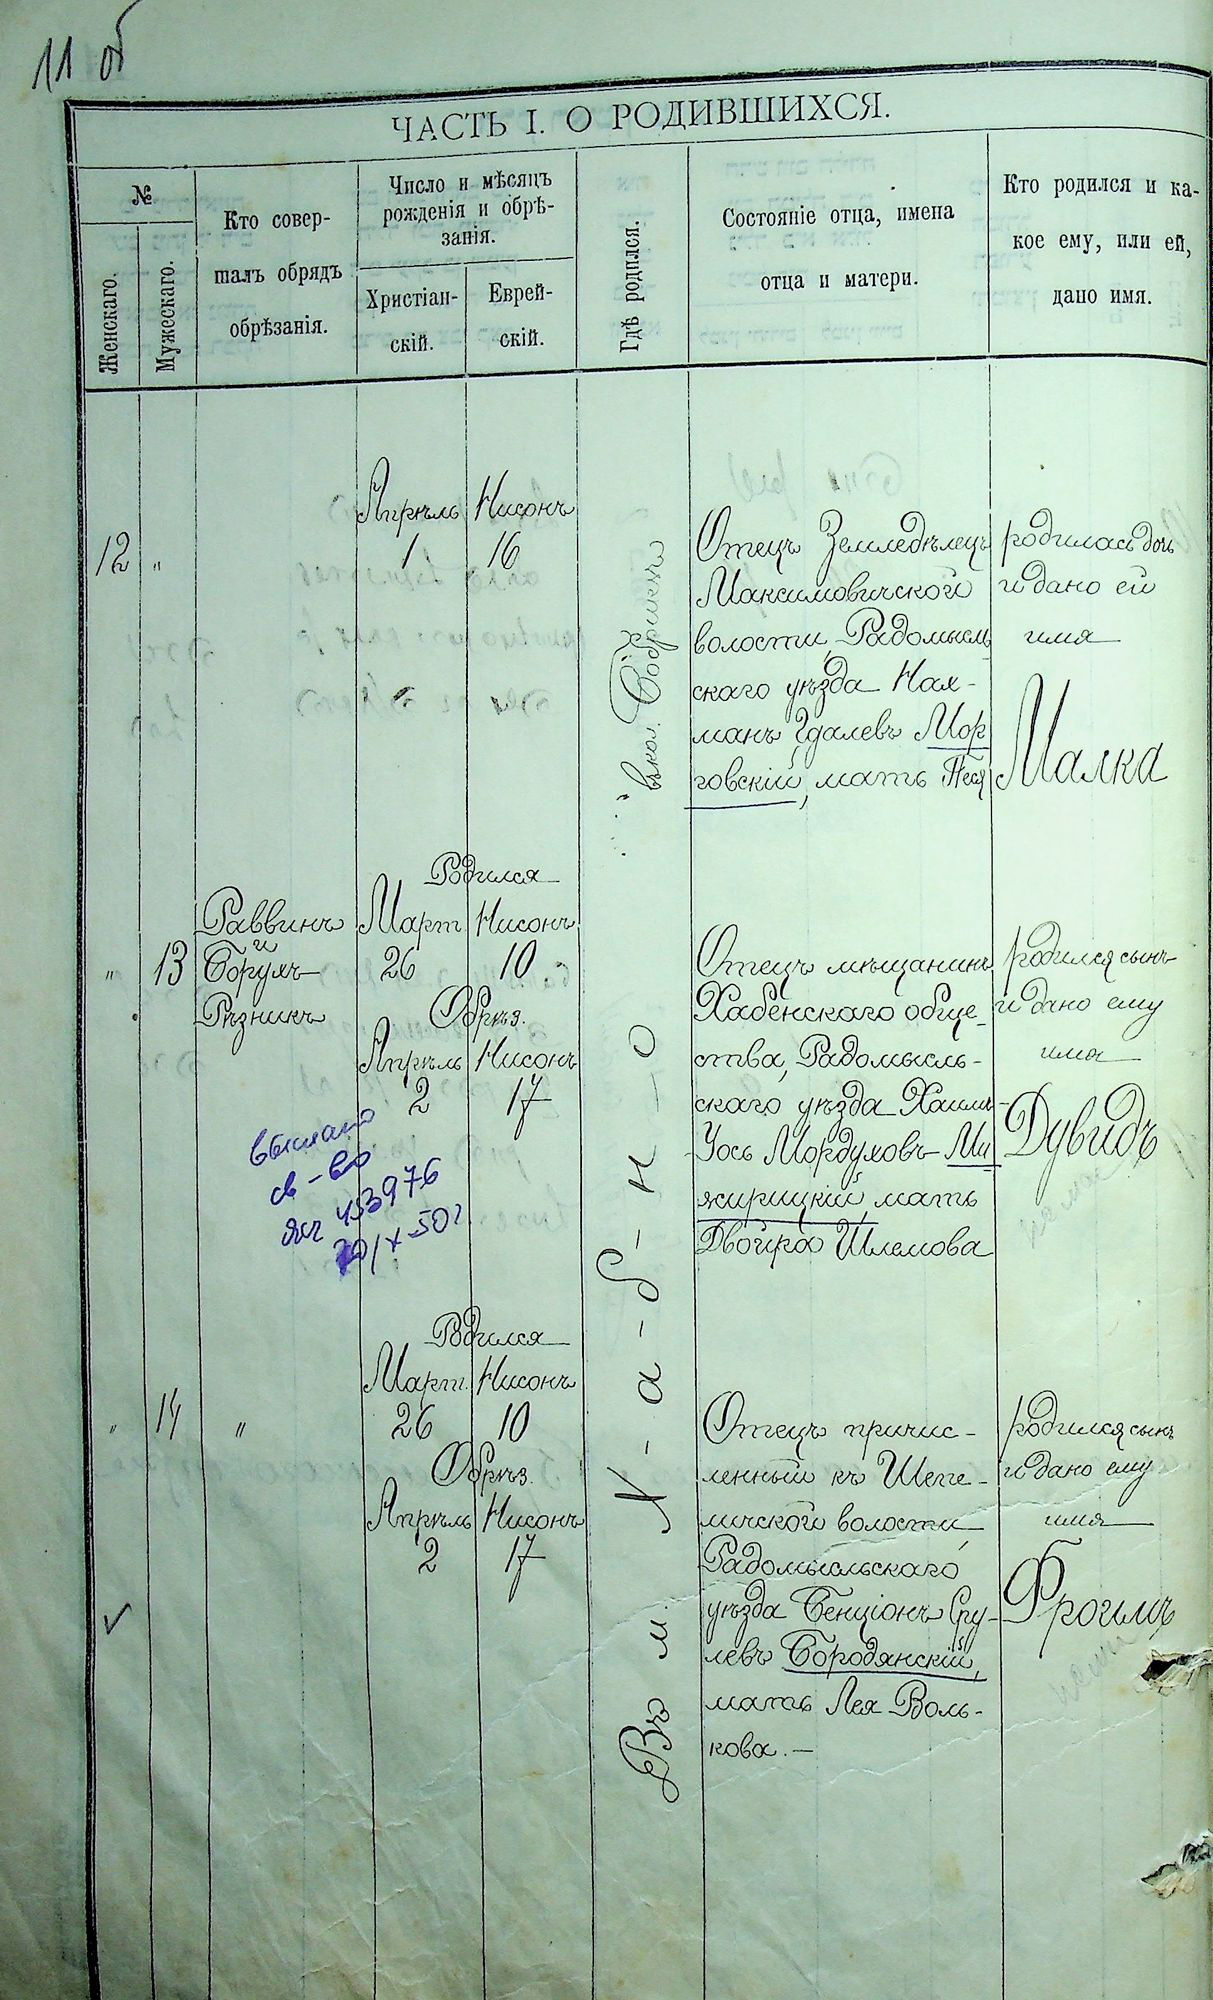 11 об
ЧАСТЬ I. О РОДИВШИХСЯ.
№
Женскаго.
Мужескаго.
Кто совер-
шалъ обрядъ
обрѣзанія.
Число и мѣсяцъ
рожденія и обрѣ-
занія.
Христіан-
скій.
Еврей-
скій.
Гдѣ родился.
Состояніе отца, имена
отца и матери.
Кто родился и ка-
кое ему, или ей,
дано имя.
12 "
Апрѣль Нисонъ
1 16
въ кол. Бобрикъ
Отецъ Земледѣлецъ
Максимовичской
волости, Радомысль
скаго уѣзда Нах-
манъ Гдалевъ Мор
говскій, мать Песя
родилась дочь
и дано ей
имя
Малка
" 13
Раввинъ
и
Борухъ
Рѣзникъ
Родился
Март. Нисонъ
26 10.
Обрѣз.
Апрѣль Нисонъ
2 17
Въ м. Х-а-б-н-о
Отецъ мѣщанинъ
Хабенскаго обще-
ства, Радомысль-
скаго уѣзда Хаимъ-
Уось Мордуховъ Ми
жирицкій, мать
Двойра Шлемова
родился сынъ
и дано ему
имя
Дувидъ
выслано
св-во
яч 453976
/X-50г
" 14 "
Родился
Март. Нисонъ
26 10
Обрѣз.
Апрѣль Нисонъ
2 17
Отецъ причис-
ленный къ Шепе-
личской волости,
Радомысльскаго
уѣзда Бенціонъ Сру-
левъ Бородянскій,
мать Лея Воль-
кова. —
родился сынъ
и дано ему
имя
Фроимъ